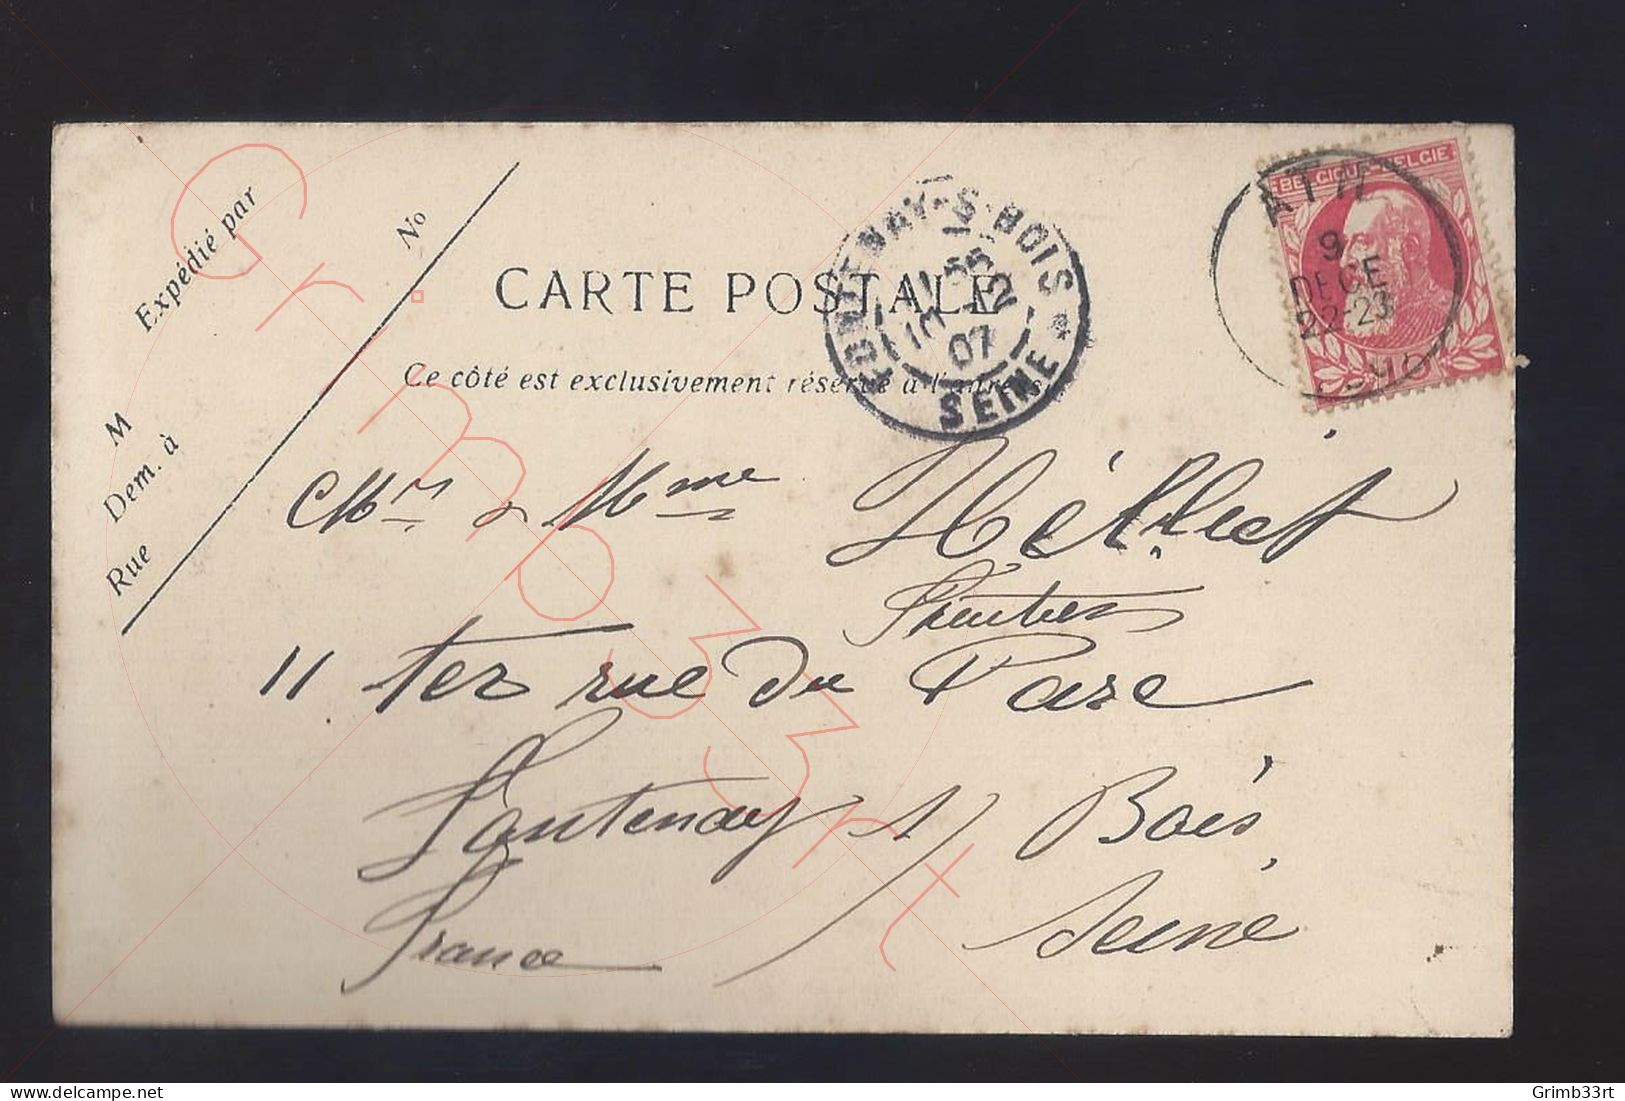 Expédié par
No
M
Dem. à
Rue
CARTE POSTALE
Ce côté est exclusivement réservé à l'adresse
FONTENAY-S-BOIS *
10 12
07
SEINE
BELGIQUE-BELGIE
ATH
9
DECE
22-23
Mr & Mme
11 ter rue du Parc
Fontenay s/ Bois
Seine
France
Grimb33rt
delcampe.net
Grimb33rt